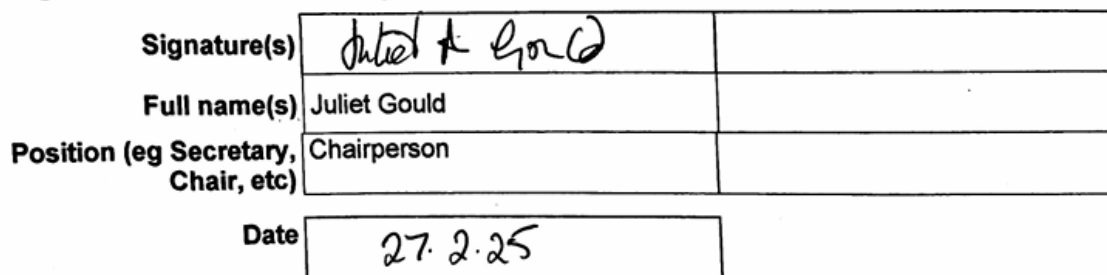 Signature(s) Juliet A Gould
Full name(s) Juliet Gould
Position (eg Secretary, Chairperson
Chair, etc)
Date 27.2.25